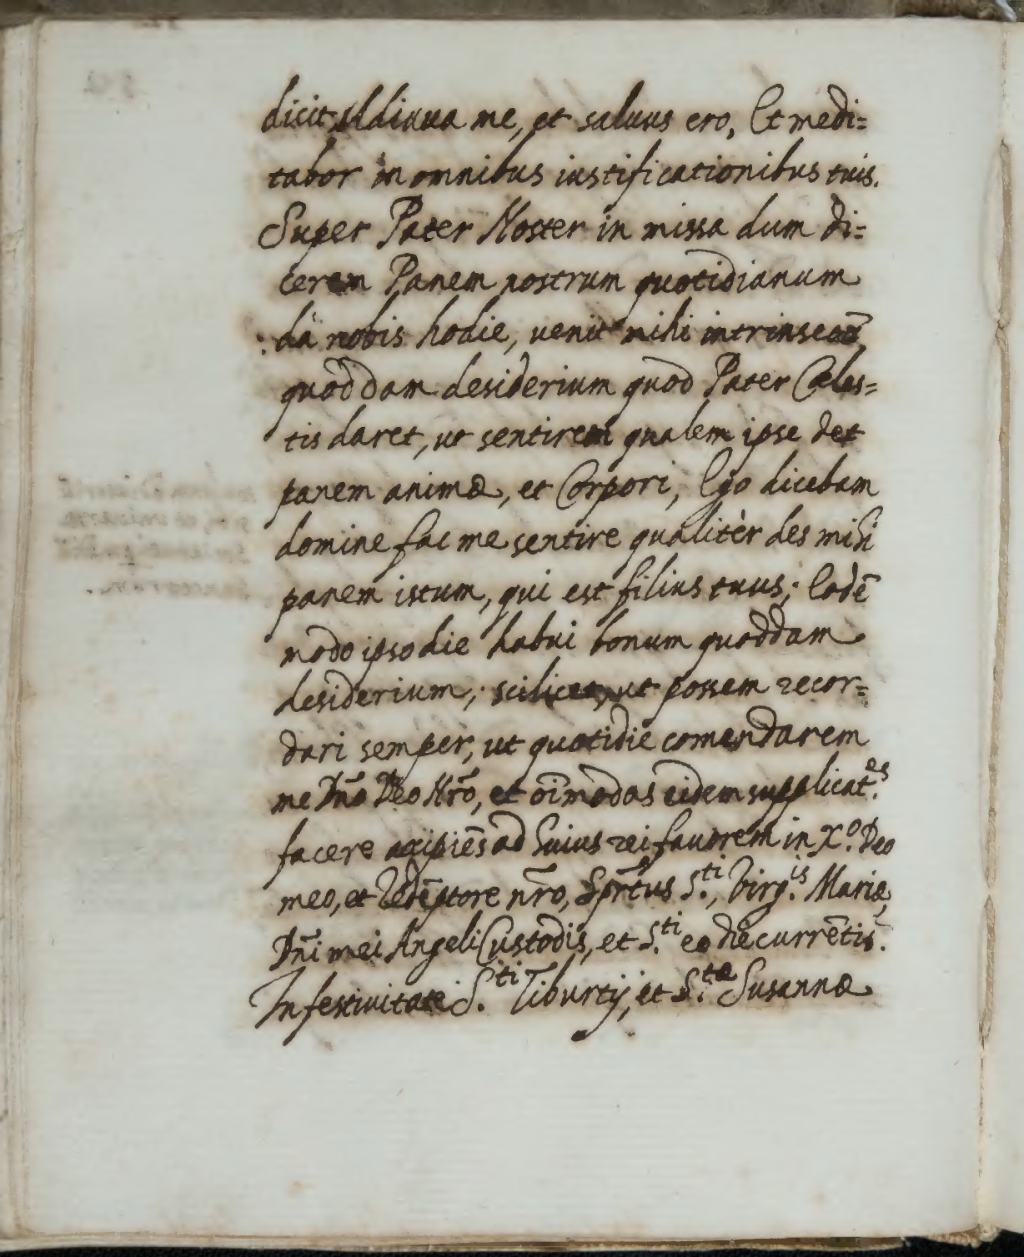 dicit, Adiuua me, et saluus ero, Et medi=
tabor in omnibus iustificationibus tuis.
Super Pater Noster in missa dum di=
cerem Panem nostrum quotidianum
da nobis hodie, venit mihi intrinsecũ
quoddam desiderium quod Pater Cœles=
tis daret, ut sentirem qualem ipse det
panem animæ, et Corpori, Ego dicebam
domine fac me sentire qualitèr des mihi
panem istum, qui est filius tuus; Eodẽ
modo ipso die habui bonum quoddam
desiderium, scilicet, ut possem recor=
dari semper, ut quotidie comendarem
me Dño Deo Nrõ, et oĩmodas eidem supplicat.es
facere accipiẽs ad huius rei fauorem in X.o Deo
meo, et Redẽptore nrõ, Sprĩtus S.ti, Virg.is Mariæ,
Dñi mei Angeli Custodis, et S.ti eo die currẽtis.
In festiuitate S.ti Tiburtij, et S.tæ Susannæ